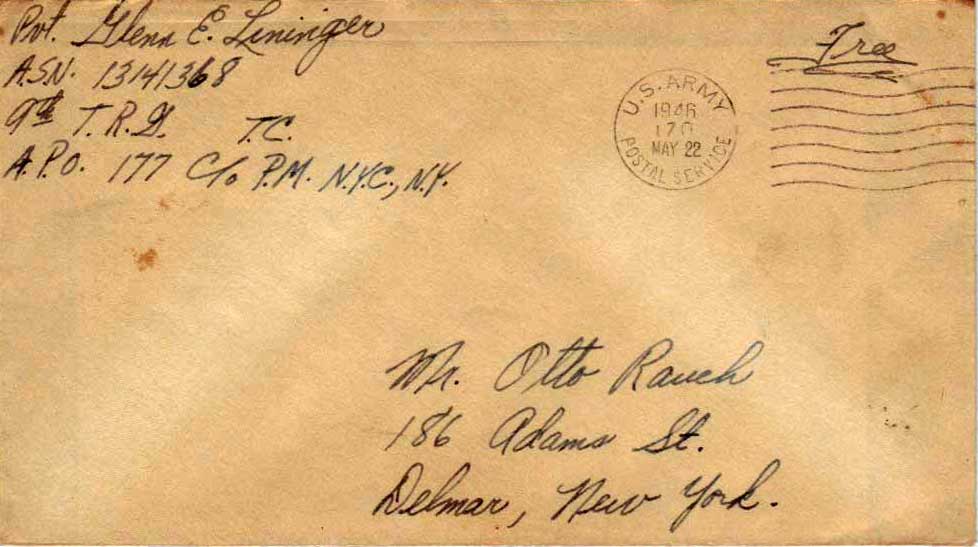 Pvt. Glenn E. Lininger
A.S.N. 13141368
9th T.R.G. T.C.
A.P.O. 177 C/o P.M. N.Y.C., N.Y.
Free
U.S. ARMY
1946
170
MAY 22
POSTAL SERVICE
Mr. Otto Rauch
186 Adams St.
Delmar, New York.